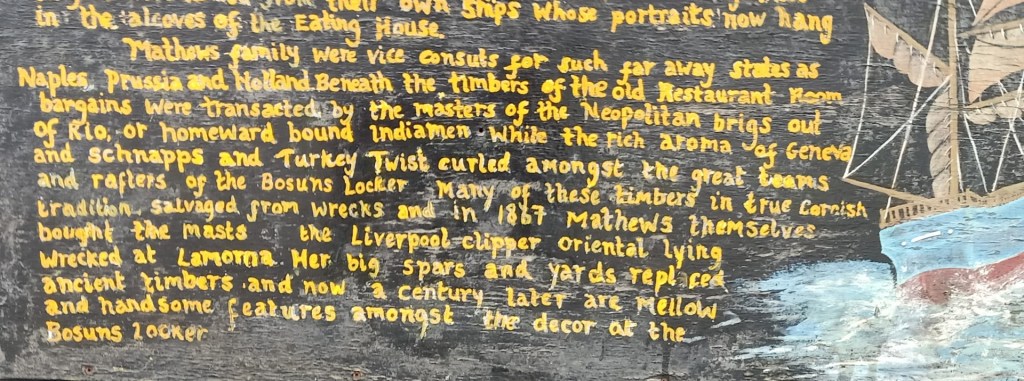 from their own ships whose portraits now hang
in the alcoves of the Eating House.
Mathews family were vice consuls for such far away states as
Naples, Prussia and Holland. Beneath the timbers of the old Restaurant Room
bargains were transacted by the masters of the Neopolitan brigs out
of Rio, or homeward bound Indiamen. While the rich aroma of Geneva
and schnapps and Turkey Twist curled amongst the great beams
and rafters of the Bosuns Locker Many of these timbers in true Cornish
tradition, salvaged from wrecks and in 1867 Mathews themselves
bought the masts the Liverpool clipper Oriental lying
wrecked at Lamorna. Her big spars and yards repl ced
ancient timbers and now a century later are mellow
and handsome features amongst the decor at the
Bosuns Locker